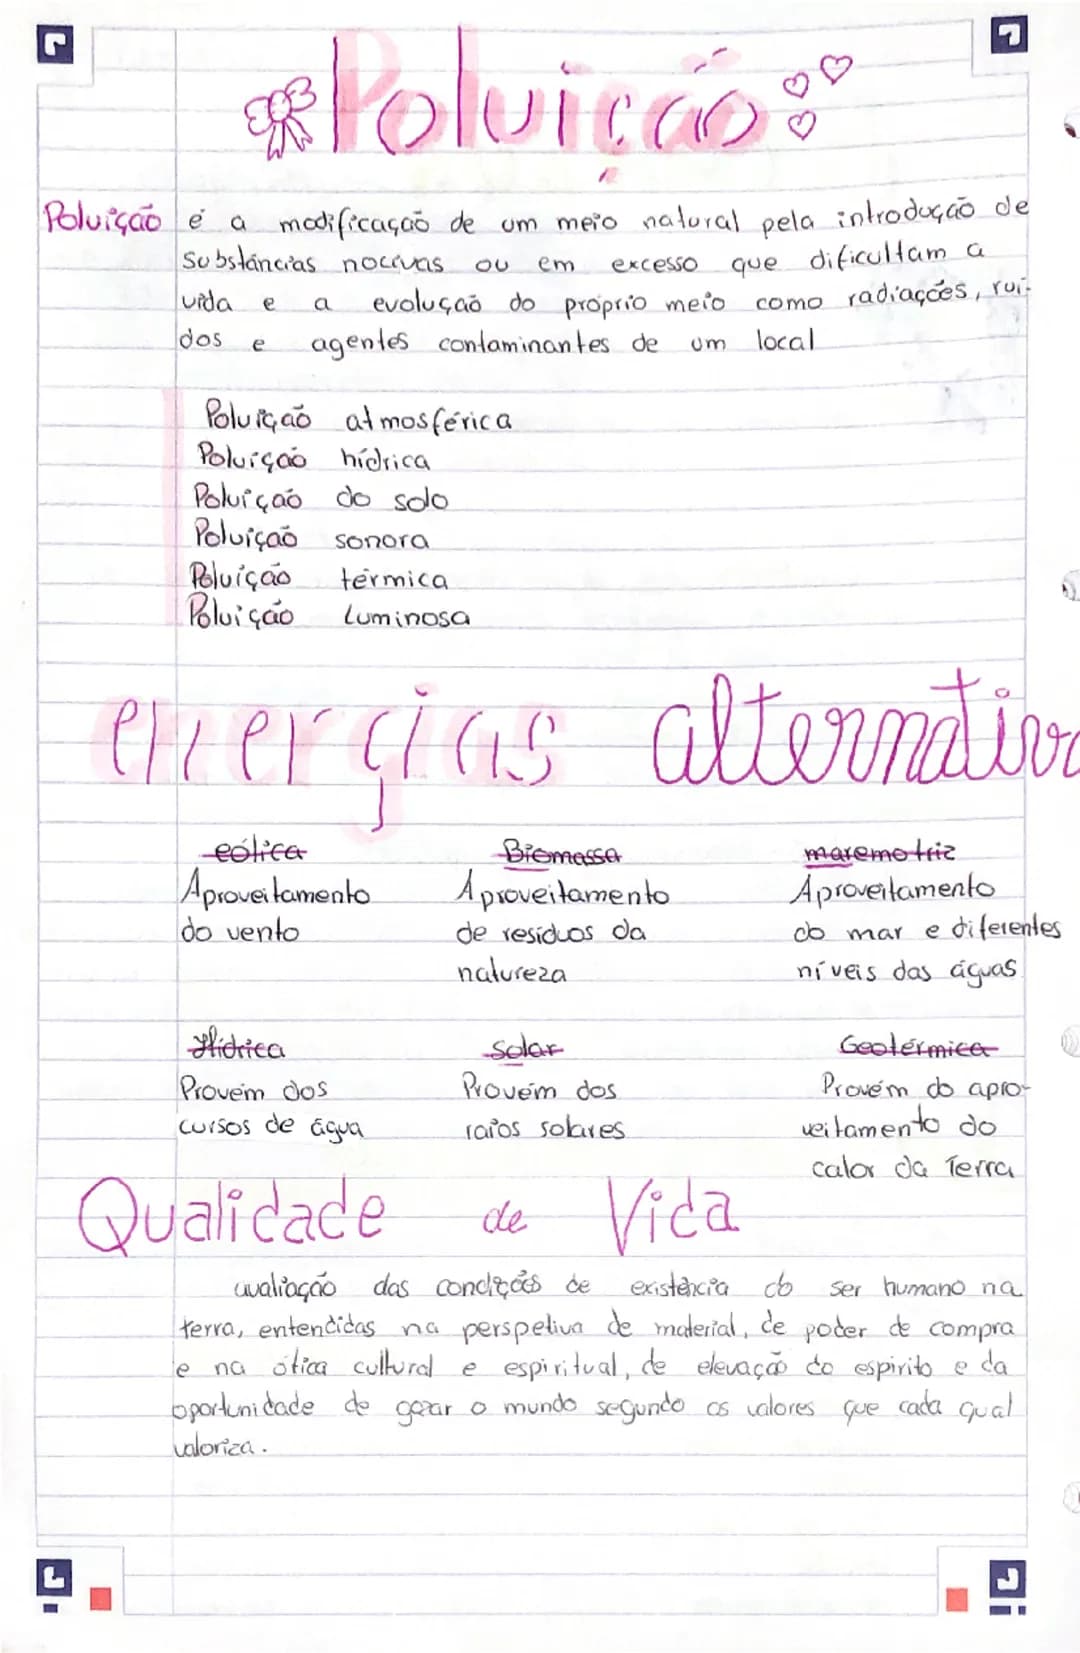 Poluição
Poluição é a modificação de um meio natural pela introdução de
substâncias nocivas ou em excesso que dificultam a
vida e a evolução do próprio meio como radiações, ruí-
dos e agentes contaminantes de um local
Poluição atmosférica
Poluição hídrica
Poluição do solo
Poluição sonora
Poluição térmica
Poluição Luminosa
energias alternativa
eólica
Aproveitamento
do vento
Biomassa
Aproveitamento
de resíduos da
natureza
maremotriz
Aproveitamento
do mar e diferentes
níveis das águas
Hídrica
Provém dos
cursos de água
solar
Provém dos
raios solares
Geotérmica
Provém do apro-
veitamento do
calor da Terra
Qualidade de Vida
avaliação das condições de existência do ser humano na
terra, entendidas na perspetiva de material, de poder de compra
e na ótica cultural e espiritual, de elevação do espirito e da
oportunidade de gozar o mundo segundo os valores que cada qual
valoriza.